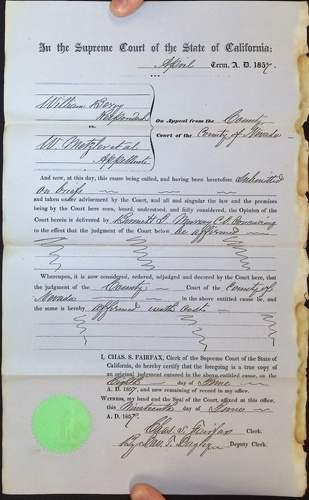 In the Supreme Court of the State of California:
April Term, A. D. 1857
William Berry
Respondent
vs.
W. Metzler et al
Appellants
On Appeal from the County
Court of the County of Nevada
And now, at this day, this cause being called, and having been heretofore submitted
on briefs
and taken under advisement by the Court, and all and singular the law and the premises
being by the Court here seen, heard, understood, and fully considered, the Opinion of the
Court herein is delivered by Burnett J. Murray C J. concurring
to the effect that the judgment of the Court below be affirmed
Whereupon, it is now considered, ordered, adjudged and decreed by the Court here, that
the judgment of the County Court of the County of
Nevada in the above entitled cause be, and
the same is hereby affirmed with costs
I, CHAS. S. FAIRFAX, Clerk of the Supreme Court of the State of
California, do hereby certify that the foregoing is a true copy of
an original judgment entered in the above entitled cause, on the
Eighth day of June
A. D. 1857, and now remaining of record in my office.
WITNESS, my hand and the Seal of the Court, affixed at this office,
this Nineteenth day of June
A. D. 1857.
Chas. S. Fairfax Clerk.
By Jas. T. Deputy Clerk.